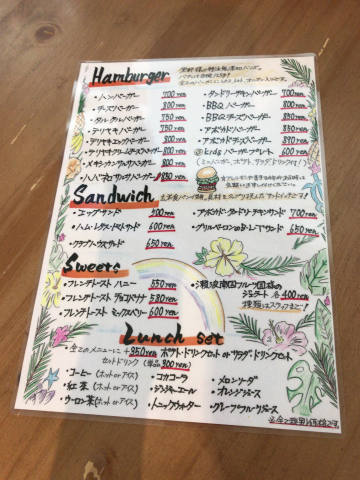 Hamburger
・ハンバーガー 700 yen
・チーズバーガー 800 yen
750 yen
・テリヤキバーガー 750 yen
・テリヤキエッグバーガー 800 yen
・テリヤキクリームチーズバーガー 800 yen
・メキシカンサルサバーガー 800 yen
・ハバネロサルサバーガー 850 yen
・タンドリーチキンバーガー 700 yen
・BBQバーガー 800 yen
・BBQチーズバーガー 850 yen
・アボカドバーガー 850 yen
・アボカドチーズバーガー 890 yen
・Kidsバーガープレート 600 yen
(ミニハンバーガー、ポテト、ドリンク付)
Sandwich
・エッグサンド 500 yen
・ハム・レタス・トマトサンド 600 yen
・クラブハウスサンド 650 yen
・アボカド・タンドリーチキンサンド 700 yen
・グリルベーコンのB・L・Tサンド 650 yen
Sweets
・フレンチトースト ハニー 550 yen
・フレンチトースト チョコバナナ 580 yen
・フレンチトースト ミックスベリー 600 yen
・瀬波南国フルーツ園様の
ジェラート 各400 yen
種類はスタッフまで!
Lunch set
・全てのメニューに +350 yen ポテト・ドリンクセット or サラダ・ドリンクセット
セットドリンク (単品 300 yen)
・コーヒー (ホット or アイス)
・紅茶 (ホット or アイス)
・ウーロン茶 (ホット or アイス)
・コカコーラ
・ジンジャーエール
・トニックウォーター
・メロンソーダ
・オレンジジュース
・グレープフルーツジュース
※全て税別価格です。